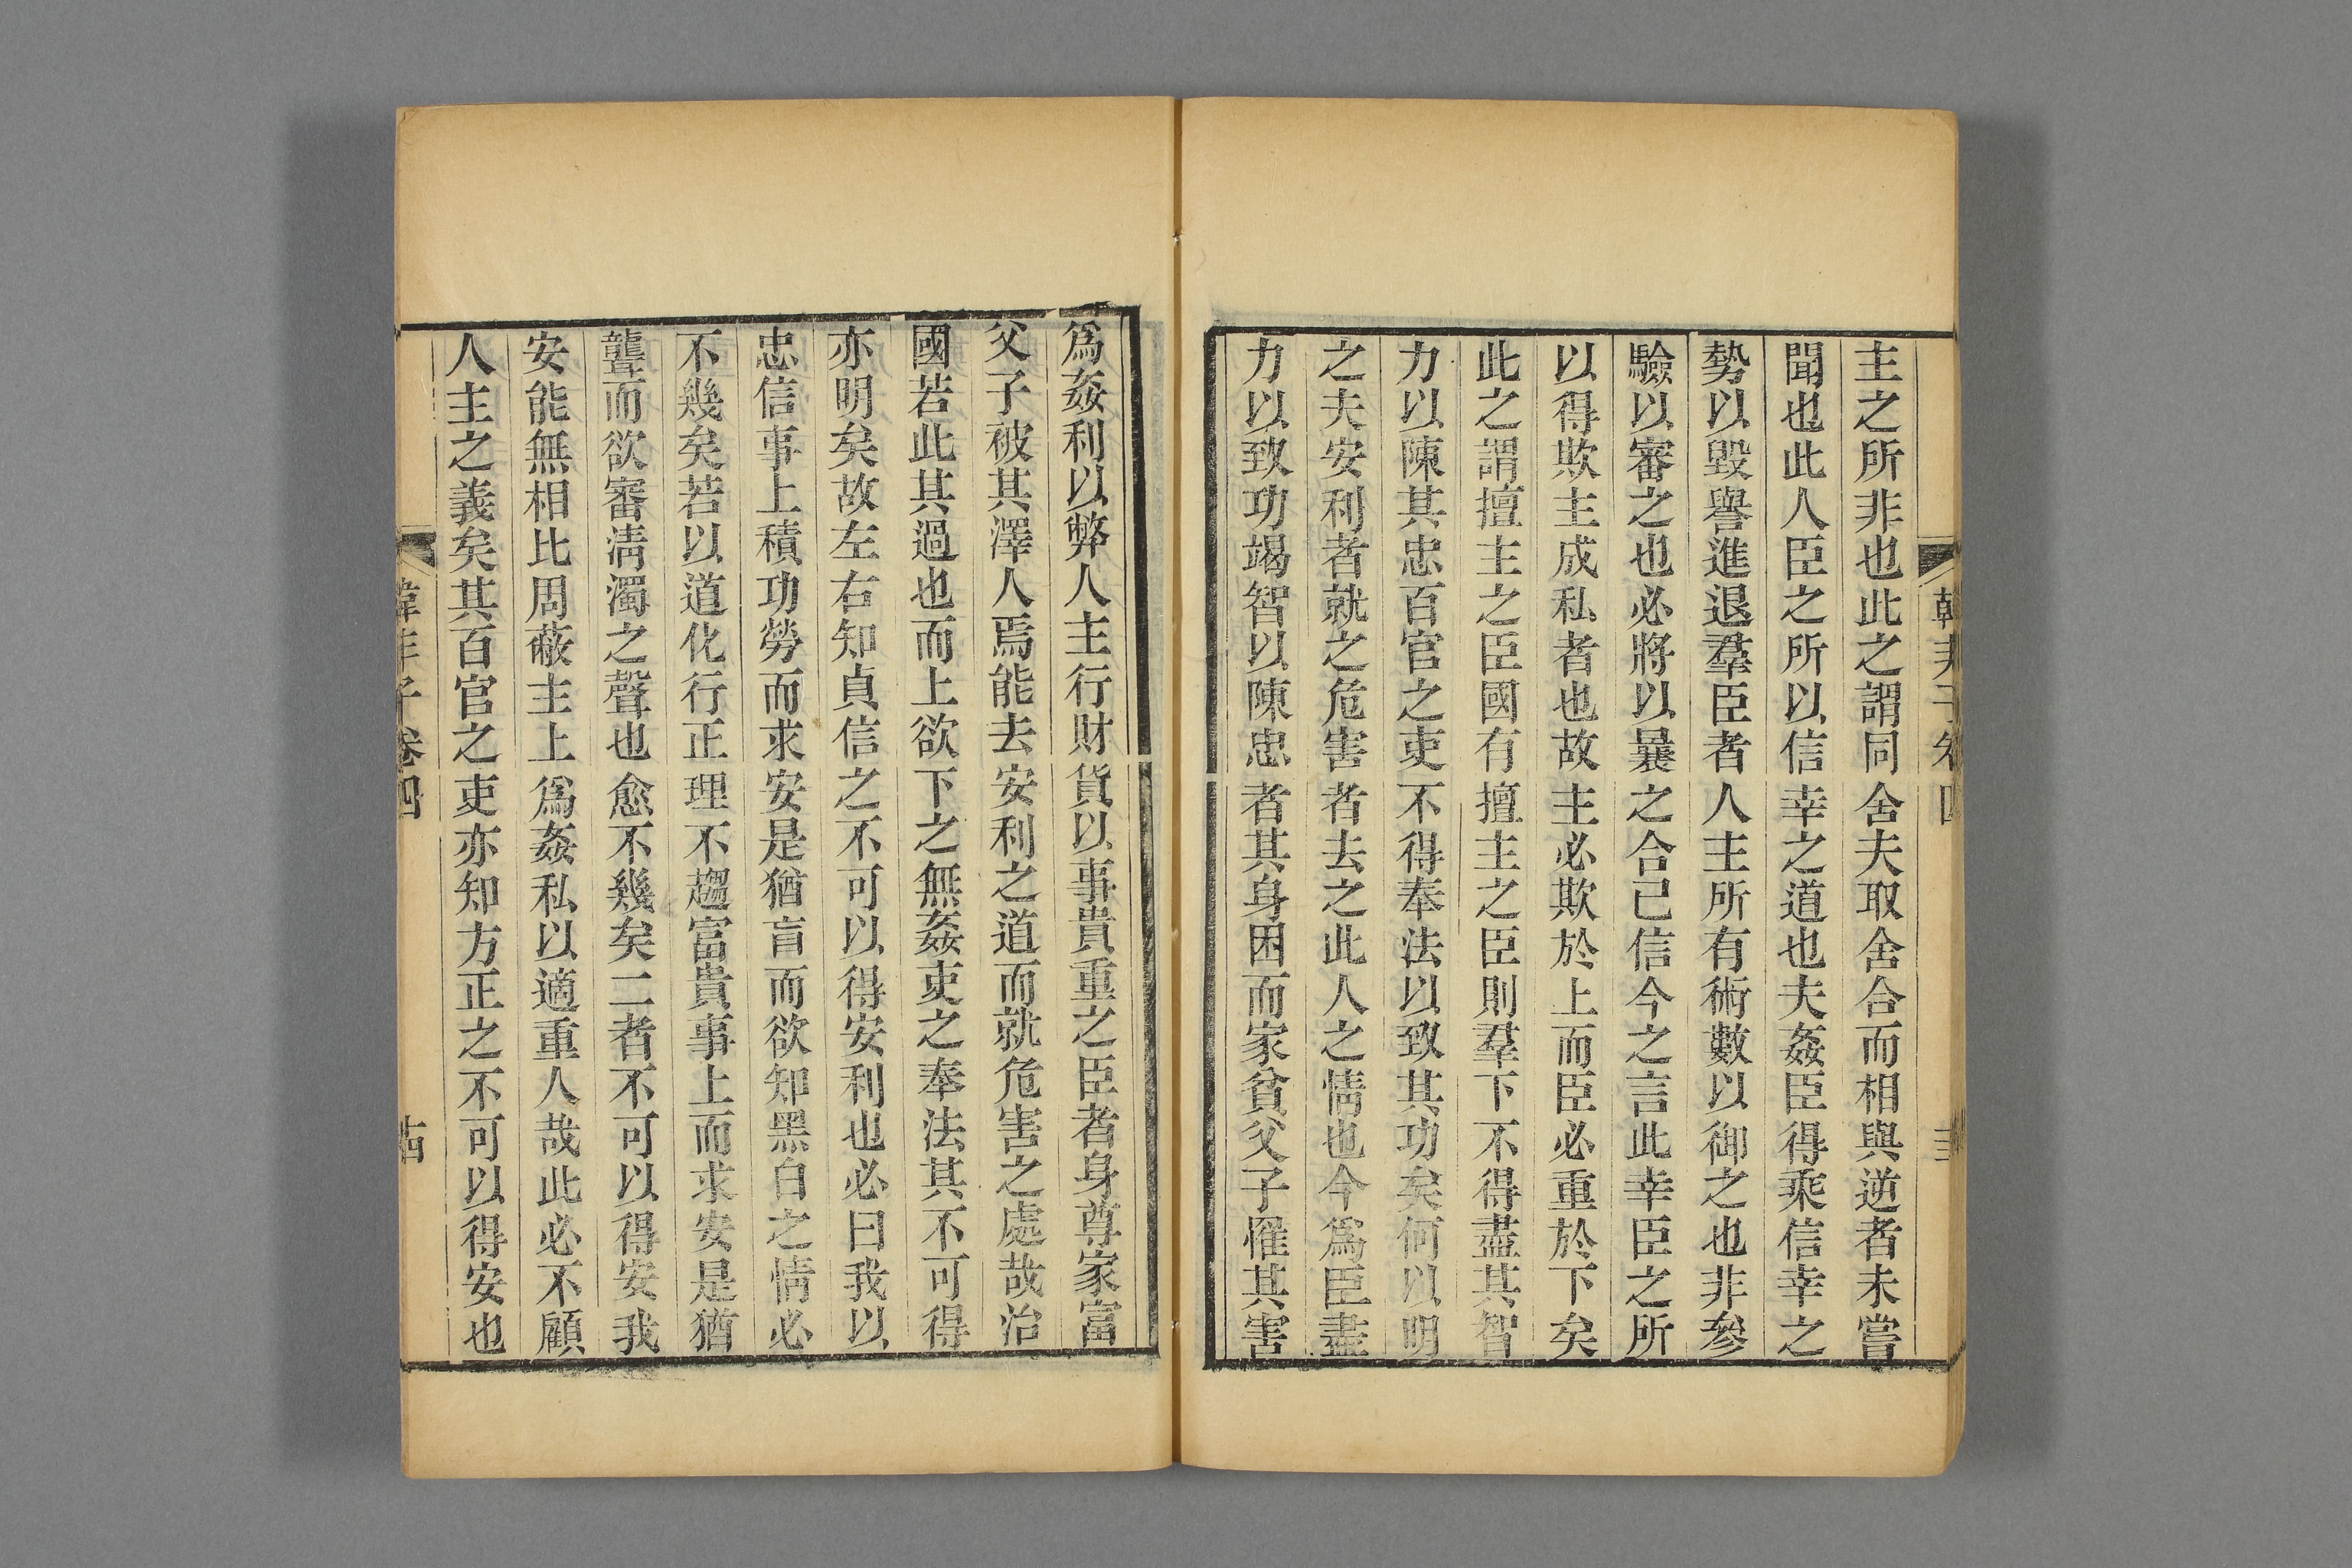 主之所非也此之謂同舍夫取舍合而相與逆者未嘗
聞也此人臣之所以信幸之道也夫姦臣得乘信幸之
勢以毀譽進退羣臣者人主所有術數以御之也非參
驗以審之也必將以曩之合己信今之言此幸臣之所
以得欺主成私者也故主必欺於上而臣必重於下矣
此之謂擅主之臣國有擅主之臣則羣下不得盡其智
力以陳其忠百官之吏不得奉法以致其功矣何以明
之夫安利者就之危害者去之此人之情也今爲臣盡
力以致功竭智以陳忠者其身困而家貧父子罹其害
爲姦利以弊人主行財貨以事貴重之臣者身尊家富
父子被其澤人焉能去安利之道而就危害之處哉治
國若此其過也而上欲下之無姦吏之奉法其不可得
亦明矣故左右知貞信之不可以得安利也必曰我以
忠信事上積功勞而求安是猶盲而欲知黑白之情必
不幾矣若以道化行正理不趨富貴事上而求安是猶
聾而欲審清濁之聲也愈不幾矣二者不可以得安我
安能無相比周蔽主上爲姦私以適重人哉此必不顧
人主之義矣其百官之吏亦知方正之不可以得安也
韓非子卷四